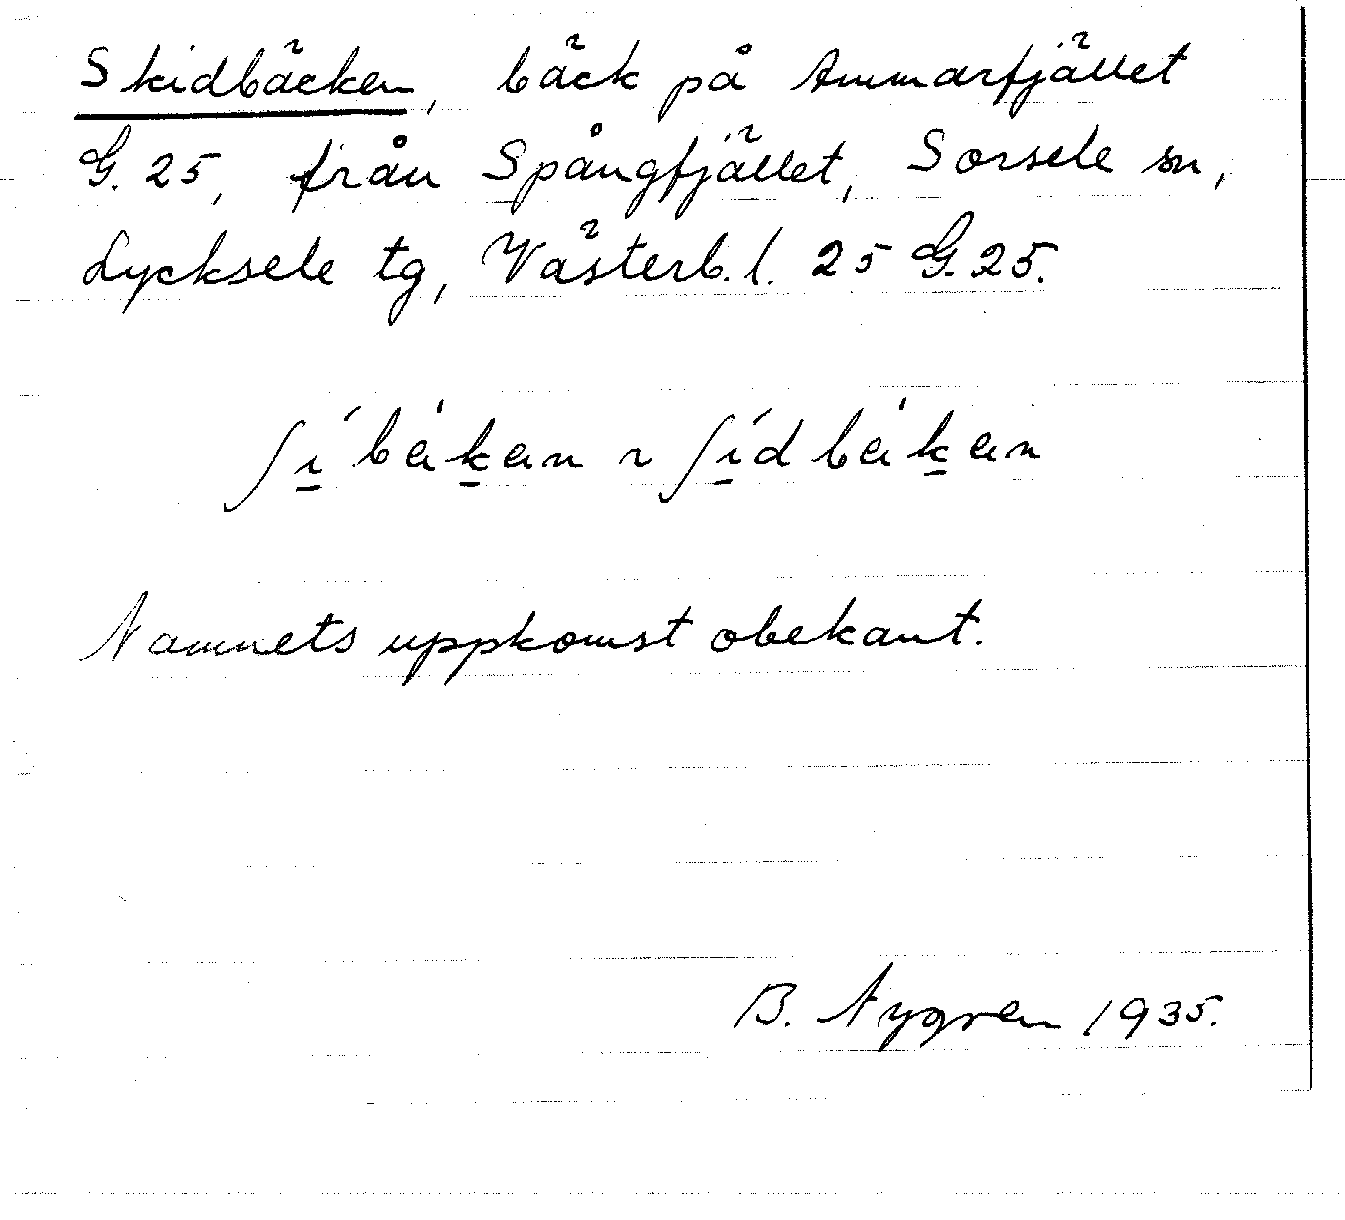 Skidbäcken, bäck på Ammarfjället
G. 25, från Spångfjället, Sorsele sn,
Lycksele tg, Västerb. l. 25 G. 25.
ʃi̱´bèḵen ~ ʃi̱´dbèḵen
Namnets uppkomst obekant.
B. Nygren 1935.